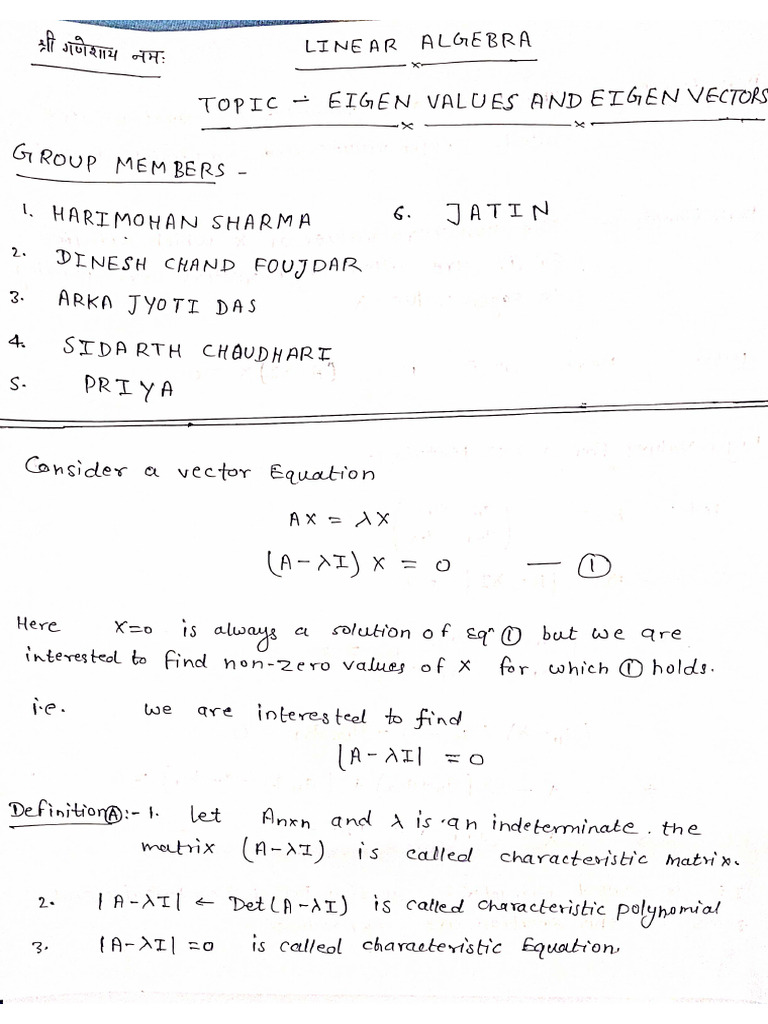 श्री गणेशाय नमः
LINEAR ALGEBRA
TOPIC - EIGEN VALUES AND EIGEN VECTORS
GROUP MEMBERS -
1. HARIMOHAN SHARMA
6. JATIN
2. DINESH CHAND FOUJDAR
3. ARKA JYOTI DAS
4. SIDARTH CHOUDHARI
5. PRIYA
Consider a vector Equation
AX = λX
(A-λI) X = 0 — ①
Here X=0 is always a solution of Eqⁿ ① but we are
interested to find non-zero values of X for which ① holds.
i.e. we are interested to find
|A-λI| = 0
Definition Ⓐ:- 1. Let Anxn and λ is an indeterminate. the
matrix (A-λI) is called characteristic matrix.
2. |A-λI| ← Det(A-λI) is called characteristic polynomial
3. |A-λI| = 0 is called characteristic Equation